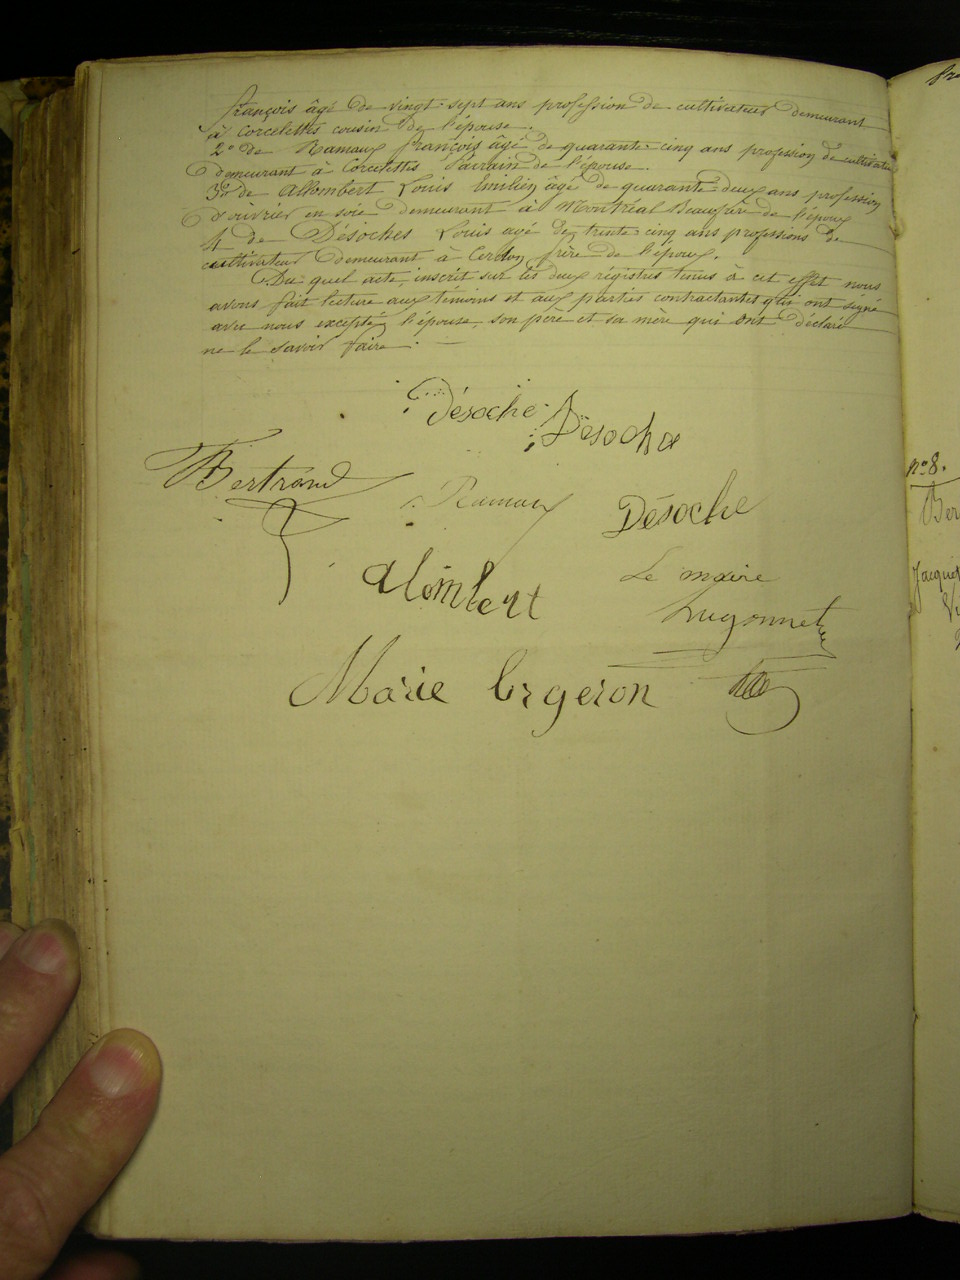 françois âgé de vingt-sept ans profession de cultivateur demeurant
à Corcelettes cousin de l'épouse.
2º de Ramaux françois âgé de quarante-cinq ans profession de cultivateur
demeurant à Corcelettes Parrain de l'épouse.
3º de Allombert Louis Emilien âgé de quarante deux ans profession
d'ouvrier en soie demeurant à Montréal Beaufrère de l'époux
4 de Désoches Louis agé de trente-cinq ans professions de
cultivateur demeurant à Cerdon, frère de l'époux.
Du quel acte, inscrit sur les deux régistres tenus à cet effet nous
avons fait lecture aux témoins et aux parties contractantes qui ont signé
avec nous excepté, l'épouse, son père et sa mère qui ont déclaré
ne le savoir faire.
Désoche Désoche
Bertrand Ramaux Désoche
alombert Le maire
Hugonnet
Marie
nº 8.
Ber
Jacque